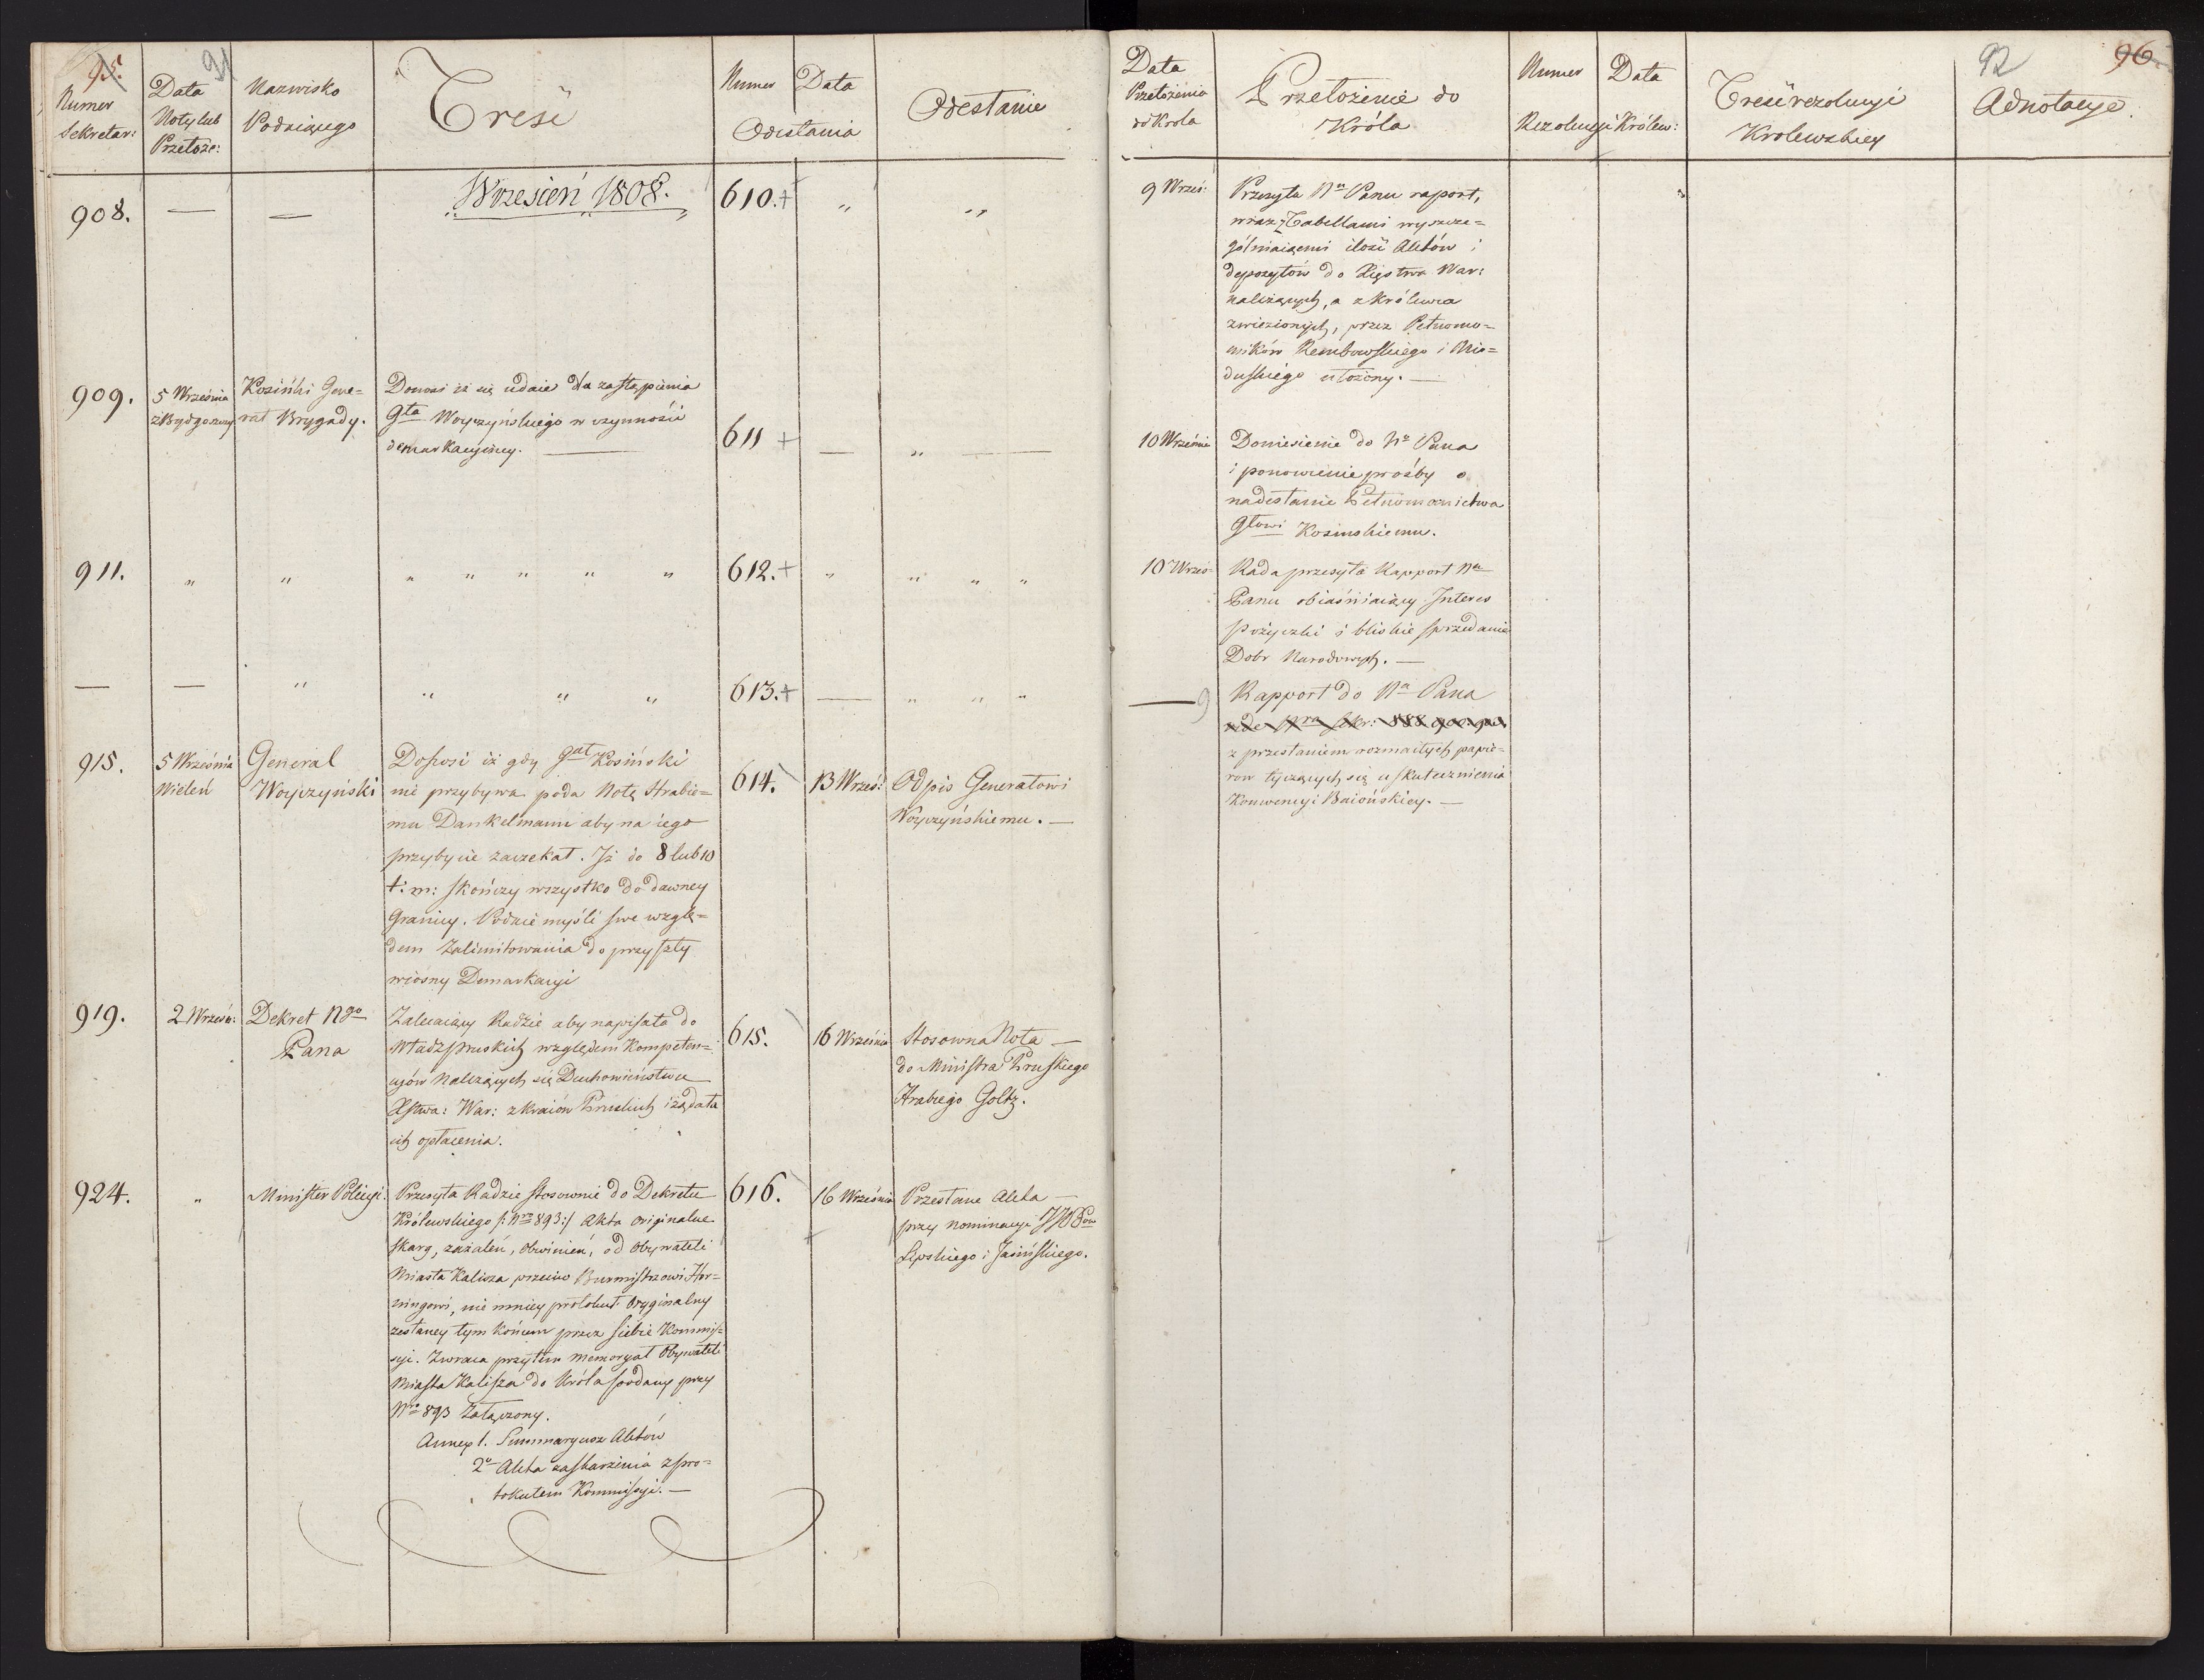 95.
91
Numer
Sekretar:
Data
Noty lub
Przełoże:
Nazwisko
Podaiącego
Treść
Numer
Data
Odesłania
Odesłanie
908.
—
—
Wrzesień 1808.
610.+
„
„
909.
5 Września
z Bydgoszczy
Kosiński Gene=
rał Brygady.
Donosi iż się udaie dla zastąpienia
Gła Woyczyńskiego w czynności
demarkacyiney. —
611 +
—
„ —
911.
„
„
„ „ „ „ „
612.+
„
„ „ „
—
—
„
„ „ „
613.+
—
„ „ „
915.
5 Września
Wieleń
General
Woyczyński
Donosi iż gdy Gał Kosiński
nie przybywa poda Notę Hrabie=
mu Dankelmann aby na iego
przybycie zaczekał. Iż do 8 lub 10
t: m: skończy wszystko do dawney
Granicy. Podaie myśli swe wzglę=
dem Zalimitowania do przyszły
wiosny Demarkacyi
614.
13 Wrześ:
Odpis Generałowi
Woyczyńskiemu. —
919.
2 Wrześń:
Dekret Ngo
Pana
Zalecaiący Radzie aby napisała do
Władz pruskich względem Kompeten=
cyów należących się Duchowieństwu
Xstwa: War: z kraiów Pruskich i żądała
ich opłacenia.
615.
16 Września
Stosowna Nota —
do Ministra Pruskiego
Hrabiego Goltz.
924.
„
Minister Policyi.
Przesyła Radzie stosownie do Dekretu
Królewskiego /: Nro 893:/ Akta originalne
skarg, zażaleń, obwinień, od obywateli
Miasta Kalisza przeciw Burmistrzowi Hor=
ningowi, nie mniey protokuł Oryginalny
zesłaney tym końcem przez siebie Kommis=
syi. Zwraca przytem memoryał Obywateli
Miasta Kalisza do Króla podany przy
Nro 893 Załączony.
Annex 1. Summaryusz Aktów
2o Akta zaskarżenia z pro=
tokułem Kommissyi. —
616.
16 Września
Przesłane Akta —
przy nominacyi JJWPów
Lipskiego i Jasińskiego.
92
96
Data
Przełożenia
do Krola
Przełożenie do
Króla
Numer
Data
Rezolucyi Królew:
Treść rezolucyi
Krolewskiey
Adnotacye.
9 Wrześ:
Przesyła Nu Panu raport,
wraz z Tabellami wyszcze=
gólniaiącemi ilość Aktów i
depozytów do Xięstwa War:
należących, a z Królewca
zwiezionych, przez Pełnomo=
cników Rembowskiego i Mio=
duskiego ułożony. —
10 Września
Doniesienie do No Pana
i ponowienie prośby o
nadesłanie Pełnomocnictwa
Głowi Kosinskiemu.
10 Wrześ:
Rada przesyła Rapport Nu
Panu obiaśniaiący Interes
pożyczki i bliskie sprzedanie
Dobr Narodowych. —
— 9
Rapport do Na Pana
z przesłaniem rozmaitych papie=
row tyczących się uskutecznienia
Konwencyi Baiońskiey. —